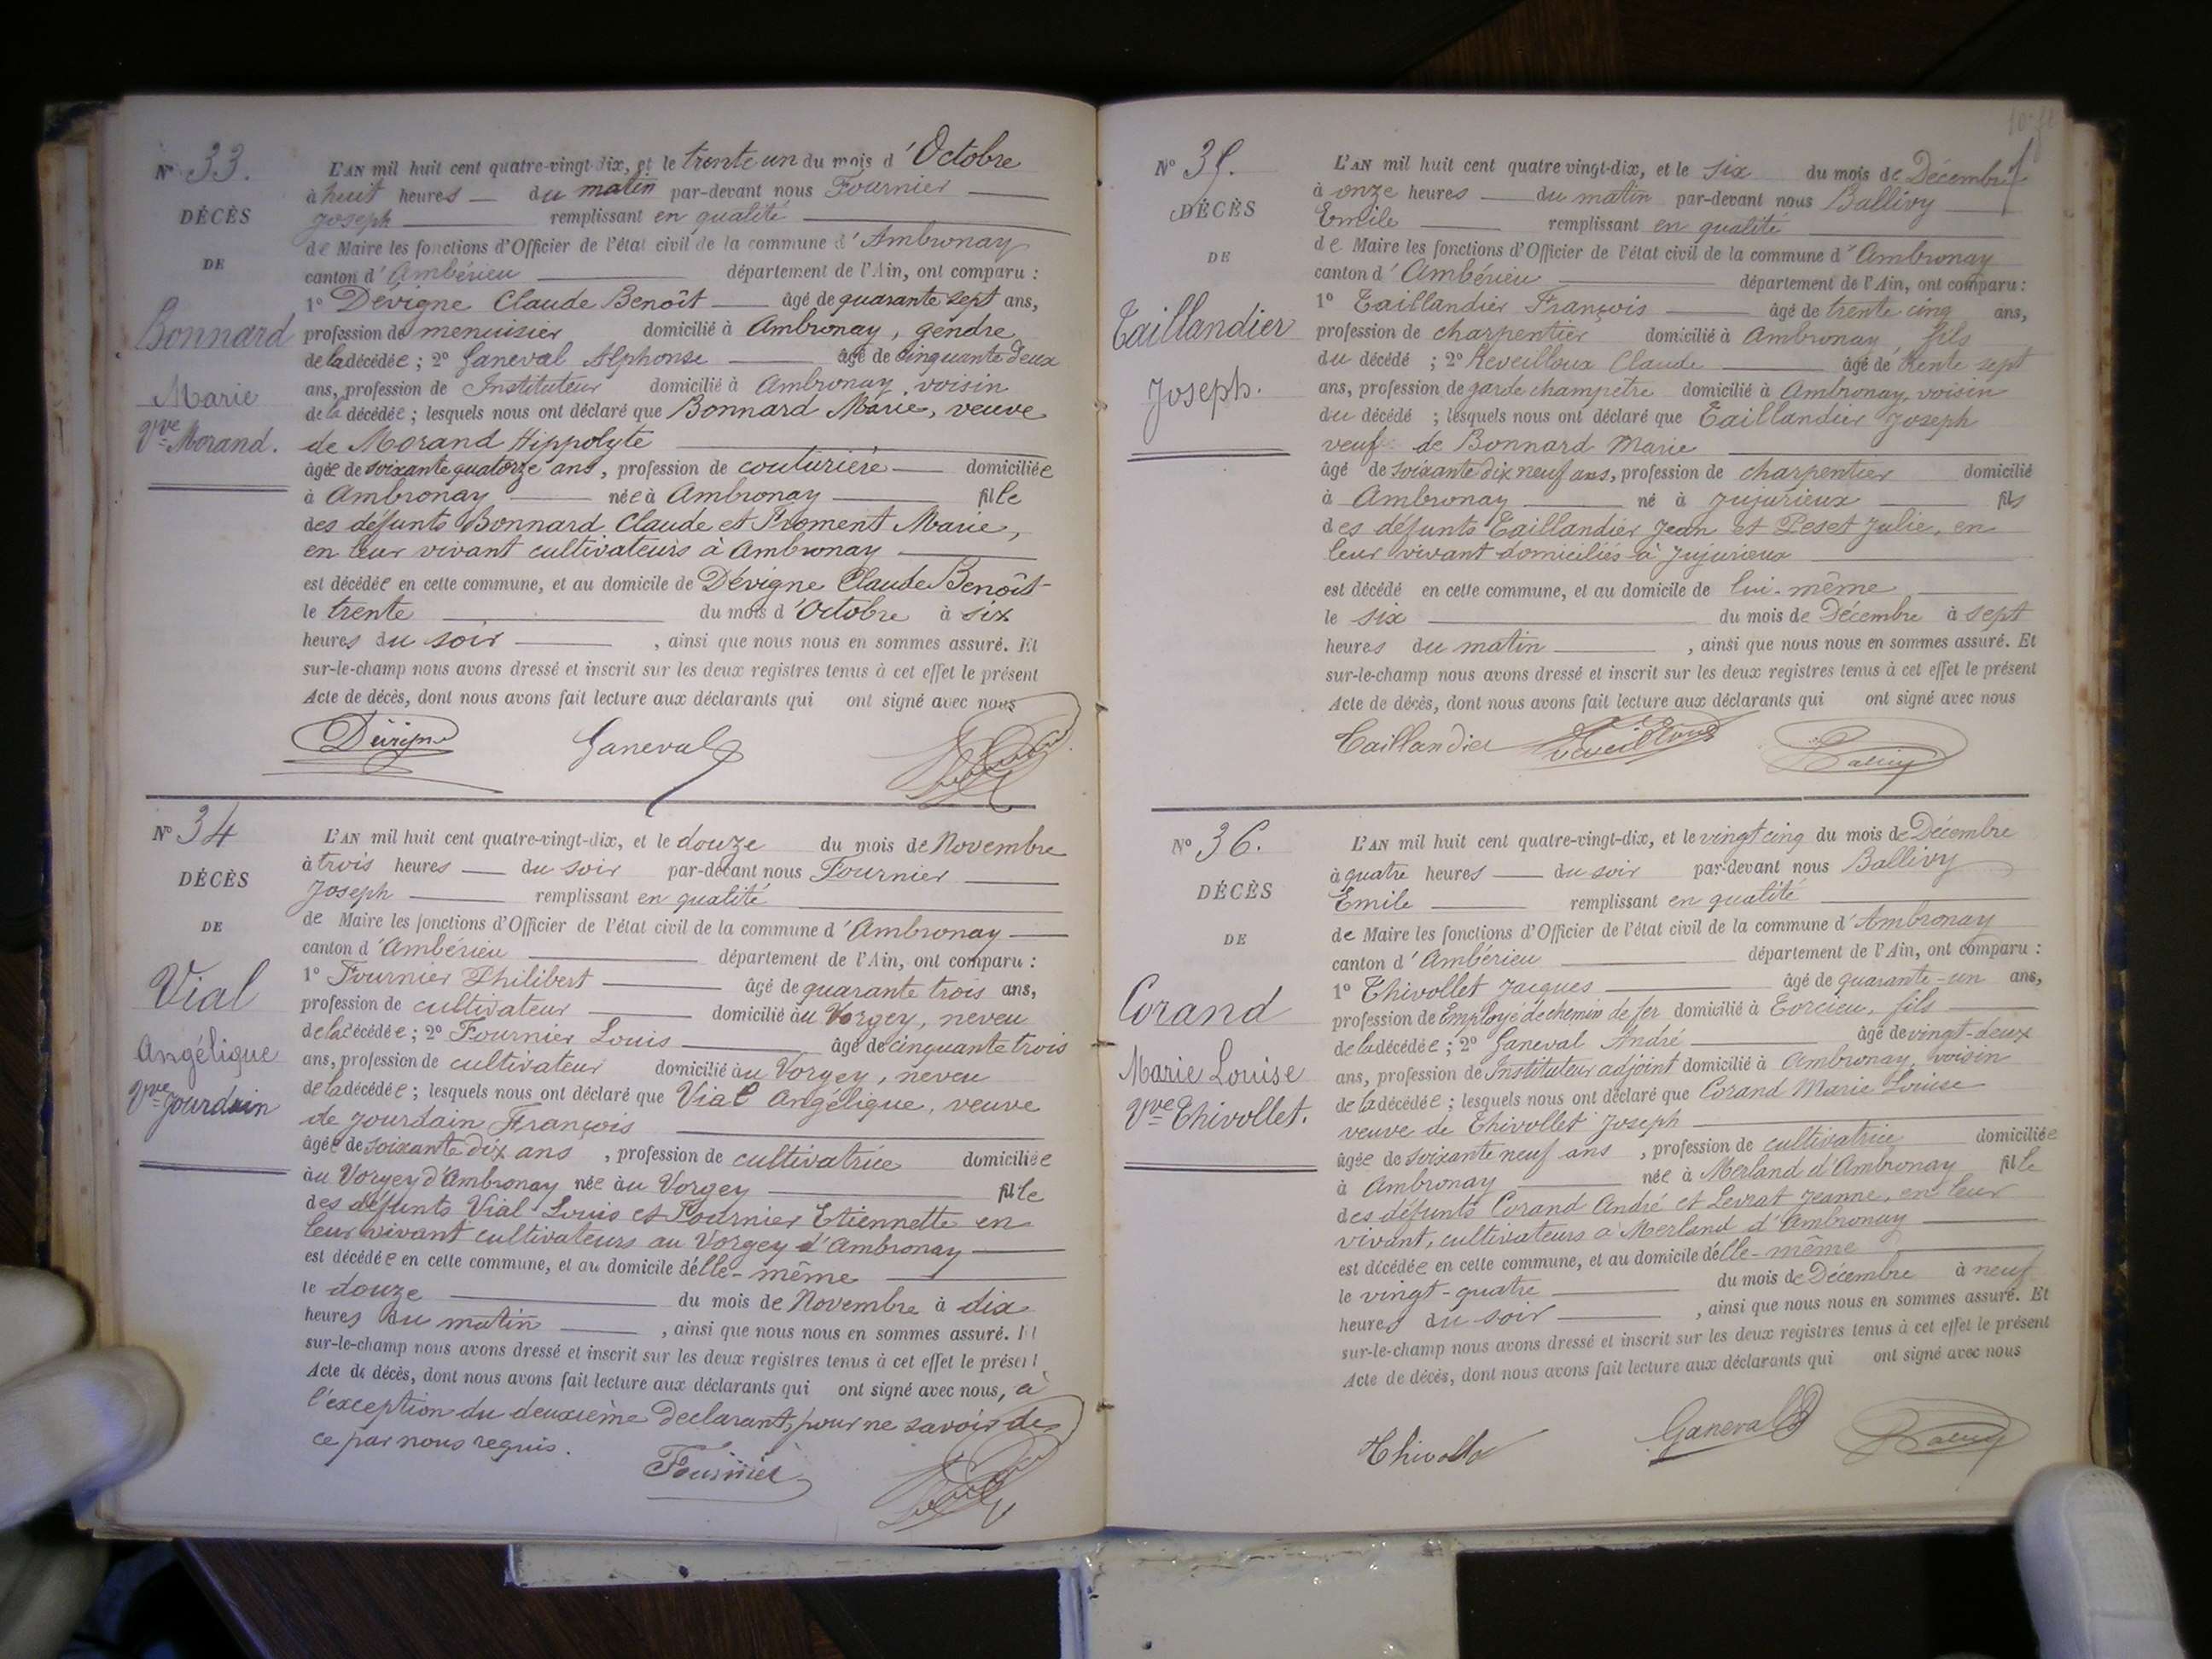 Nº 33.
DÉCÈS
DE
Bonnard
Marie
Vve Morand.
L'AN mil huit cent quatre-vingt-dix, et le trente un du mois d'Octobre
à huit heures du matin par-devant nous Fournier
Joseph remplissant en qualité
de Maire les fonctions d'Officier de l'état civil de la commune d'Ambronay
canton d'Ambérieu département de l'Ain, ont comparu :
1º Dévigne Claude Benoît âgé de quarante sept ans,
profession de menuisier domicilié à Ambronay, gendre
de la décédée ; 2º Ganeval Alphonse âgé de cinquante deux
ans, profession de Instituteur domicilié à Ambronay, voisin
de la décédée ; lesquels nous ont déclaré que Bonnard Marie, veuve
de Morand Hippolyte
âgée de soixante quatorze ans, profession de couturière domiciliée
à Ambronay née à Ambronay fille
des défunts Bonnard Claude et Froment Marie,
en leur vivant cultivateurs à Ambronay
est décédée en cette commune, et au domicile de Dévigne Claude Benoît
le trente du mois d'Octobre à six
heures du soir , ainsi que nous nous en sommes assuré. Et
sur-le-champ nous avons dressé et inscrit sur les deux registres tenus à cet effet le présent
Acte de décès, dont nous avons fait lecture aux déclarants qui ont signé avec nous
Ganeval
Nº 34
DÉCÈS
DE
Vial
Angélique
Vve Jourdain
L'AN mil huit cent quatre-vingt-dix, et le douze du mois de Novembre
à trois heures du soir par-devant nous Fournier
Joseph remplissant en qualité
de Maire les fonctions d'Officier de l'état civil de la commune d'Ambronay
canton d'Ambérieu département de l'Ain, ont comparu :
1º Fournier Philibert âgé de quarante trois ans,
profession de cultivateur domicilié au Vorgey, neveu
de la décédée ; 2º Fournier Louis âgé de cinquante trois
ans, profession de cultivateur domicilié au Vorgey, neveu
de la décédée ; lesquels nous ont déclaré que Vial Angélique, veuve
de Jourdain François
âgée de soixante dix ans , profession de cultivatrice domiciliée
au Vorgey d'Ambronay née au Vorgey fille
des défunts Vial Louis et Fournier Etiennette en
leur vivant cultivateurs au Vorgey d'Ambronay
est décédée en cette commune, et au domicile d'elle-même
le douze du mois de Novembre à dix
heures du matin , ainsi que nous nous en sommes assuré. Et
sur-le-champ nous avons dressé et inscrit sur les deux registres tenus à cet effet le présent
Acte de décès, dont nous avons fait lecture aux déclarants qui ont signé avec nous, à
l'exception du deuxième déclarant, pour ne savoir de
ce par nous requis.
Fournier
Nº 35.
DÉCÈS
DE
Taillandier
Joseph.
L'AN mil huit cent quatre vingt-dix, et le six du mois de Décembre
à onze heures du matin par-devant nous Ballivy
Emile remplissant en qualité
de Maire les fonctions d'Officier de l'état civil de la commune d'Ambronay
canton d'Ambérieu département de l'Ain, ont comparu :
1º Taillandier François âgé de trente cinq ans,
profession de charpentier domicilié à Ambronay, fils
du décédé ; 2º Reveilloux Claude âgé de trente sept
ans, profession de garde champêtre domicilié à Ambronay, voisin
du décédé ; lesquels nous ont déclaré que Taillandier Joseph
veuf de Bonnard Marie
âgé de soixante dix neuf ans, profession de charpentier domicilié
à Ambronay né à Jujurieux fils
des défunts Taillandier Jean et Peset Julie, en
leur vivant domiciliés à Jujurieux
est décédé en cette commune, et au domicile de lui-même
le six du mois de Décembre à sept
heures du matin , ainsi que nous nous en sommes assuré. Et
sur-le-champ nous avons dressé et inscrit sur les deux registres tenus à cet effet le présent
Acte de décès, dont nous avons fait lecture aux déclarants qui ont signé avec nous
Taillandier
Nº 36.
DÉCÈS
DE
Corand
Marie Louise
Vve Thivollet.
L'AN mil huit cent quatre-vingt-dix, et le vingt cinq du mois de Décembre
à quatre heures du soir par-devant nous Ballivy
Emile remplissant en qualité
de Maire les fonctions d'Officier de l'état civil de la commune d'Ambronay
canton d'Ambérieu département de l'Ain, ont comparu :
1º Thivollet Jacques âgé de quarante-un ans,
profession de Employé de chemin de fer domicilié à Torcieu, fils
de la décédée ; 2º Ganeval André âgé de vingt-deux
ans, profession de Instituteur adjoint domicilié à Ambronay, voisin
de la décédée ; lesquels nous ont déclaré que Corand Marie Louise
veuve de Thivollet Joseph
âgée de soixante neuf ans , profession de cultivatrice domiciliée
à Ambronay née à Merland d'Ambronay fille
des défunts Corand André et Levrat Jeanne, en leur
vivant, cultivateurs à Merland d'Ambronay
est décédée en cette commune, et au domicile d'elle-même
le vingt-quatre du mois de Décembre à neuf
heures du soir , ainsi que nous nous en sommes assuré. Et
sur-le-champ nous avons dressé et inscrit sur les deux registres tenus à cet effet le présent
Acte de décès, dont nous avons fait lecture aux déclarants qui ont signé avec nous
Ganeval